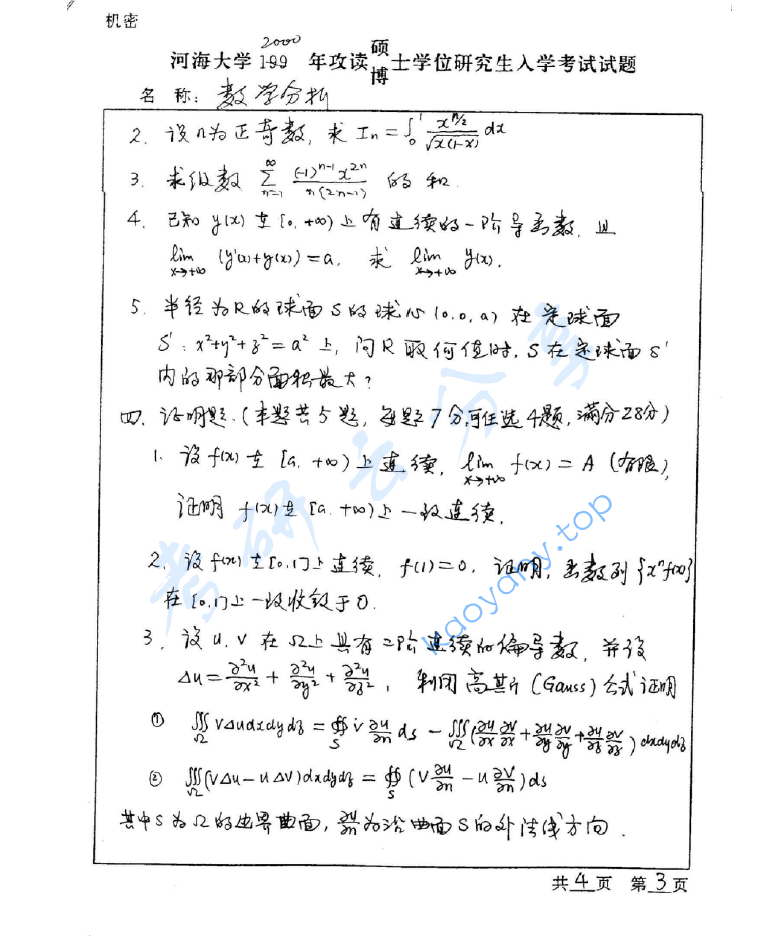 机密
河海大学 2000 年攻读硕博士学位研究生入学考试试题
名 称: 数学分析
2. 设n为正奇数, 求 Iₙ = ∫₀¹ x^(n/2)/√(x(1-x)) dx
3. 求级数 ∑_{n=1}^{∞} (-1)^(n-1) x^(2n) / (n(2n-1)) 的和.
4. 已知 y(x) 在 [0, +∞) 上有连续的一阶导函数, 且
lim_{x→+∞} (y'(x)+y(x)) = a, 求 lim_{x→+∞} y(x).
5. 半径为R的球面S的球心 (0,0,a) 在定球面
S': x²+y²+z²=a² 上, 问R取何值时, S在定球面S'
内的那部分面积最大?
四. 证明题. (本题共5题, 每题7分, 可任选4题, 满分28分)
1. 设 f(x) 在 [a, +∞) 上连续, lim_{x→+∞} f(x) = A (有限),
证明 f(x) 在 [a, +∞) 上一致连续.
2. 设 f(x) 在 [0,1] 上连续, f(1)=0, 证明, 函数列 {xⁿf(x)}
在 [0,1] 上一致收敛于0.
3. 设 u, v 在 Ω 上具有二阶连续的偏导数, 并设
Δu = ∂²u/∂x² + ∂²u/∂y² + ∂²u/∂z², 利用高斯 (Gauss) 公式证明
① ∭_Ω vΔu dxdydz = ∯_S v ∂u/∂n ds - ∭_Ω (∂u/∂x ∂v/∂x + ∂u/∂y ∂v/∂y + ∂u/∂z ∂v/∂z) dxdydz
② ∭_Ω (vΔu - uΔv) dxdydz = ∯_S (v ∂u/∂n - u ∂v/∂n) ds
其中S为Ω的边界曲面, ∂u/∂n 为沿曲面S的外法线方向.
共 4 页 第 3 页
考研云分享
kaoyany.top